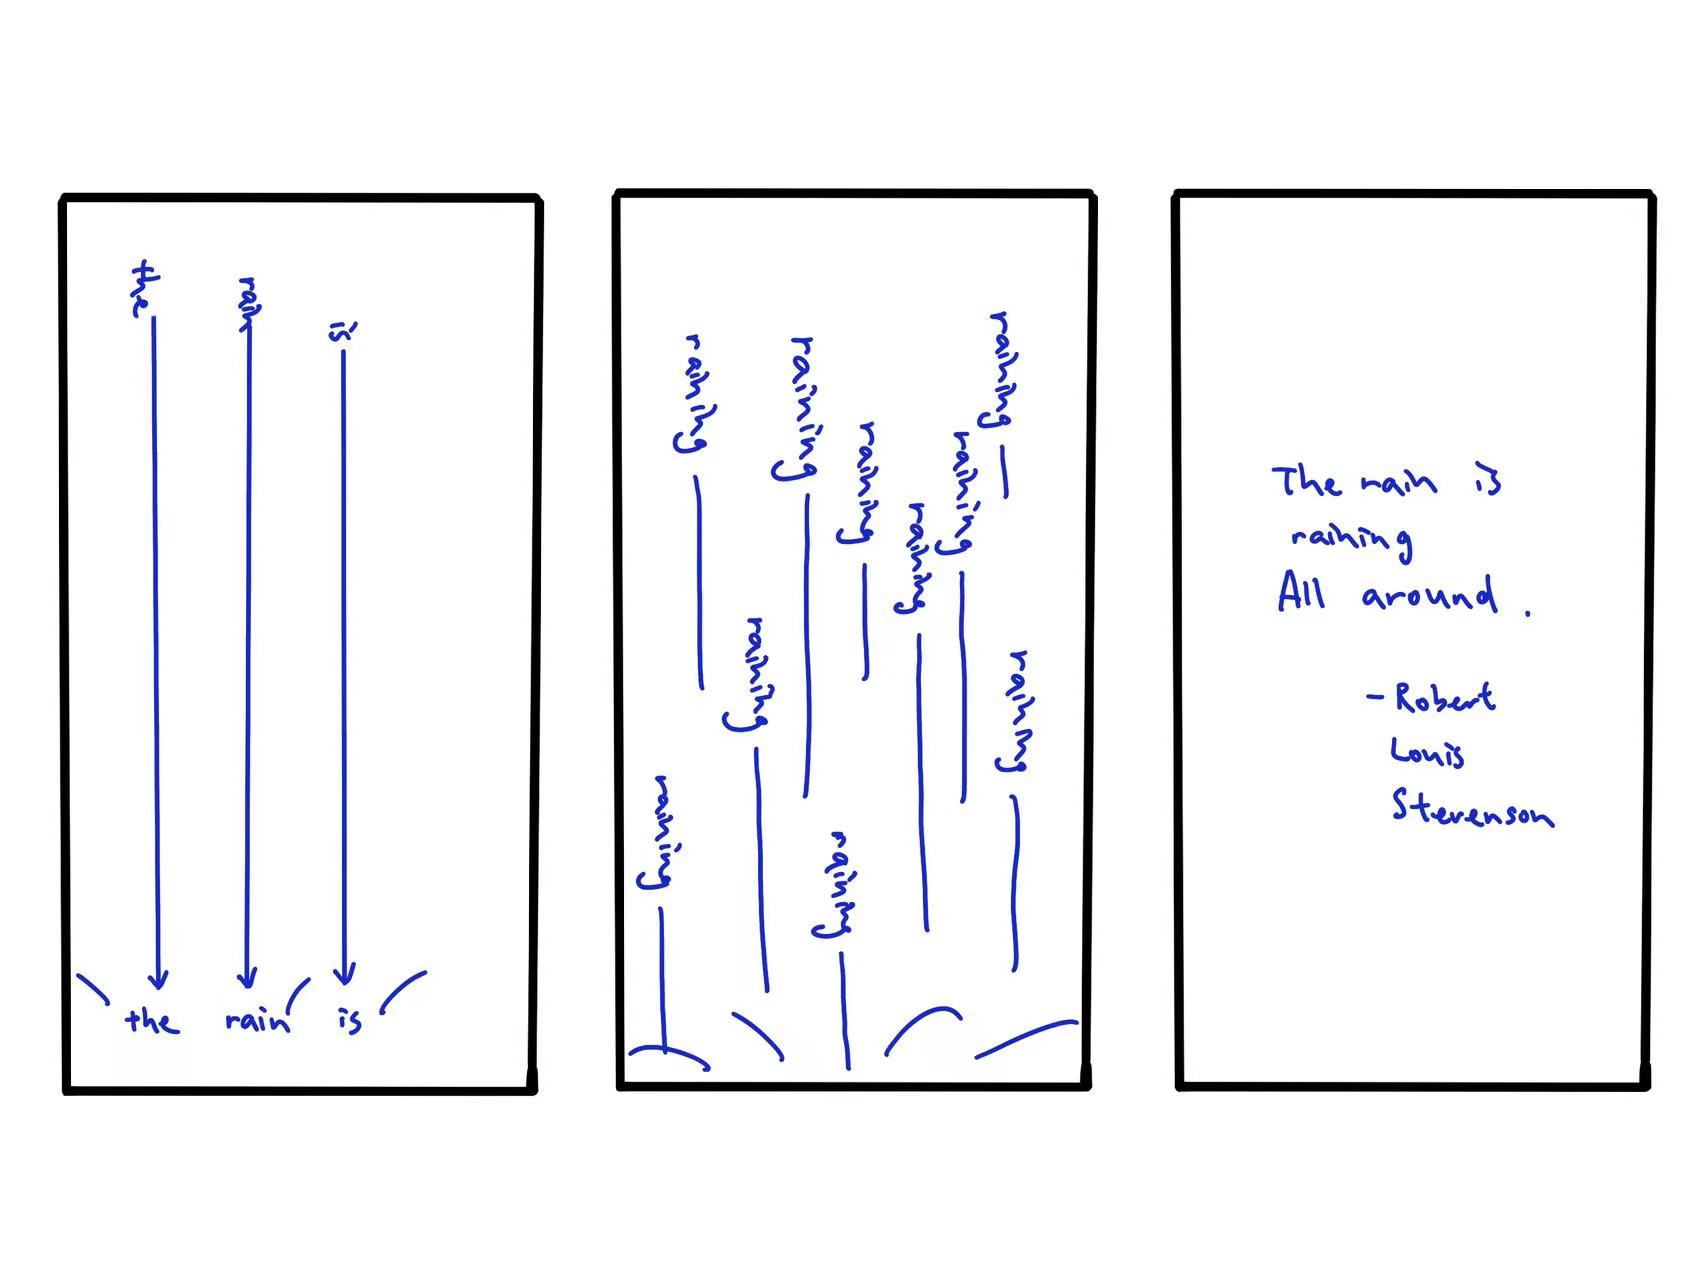 the
rain
is
the rain is
raining
raining
raining
raining
raining
raining
raining
raining
raining
raining
The rain is
raining
All around.
- Robert
Louis
Stevenson